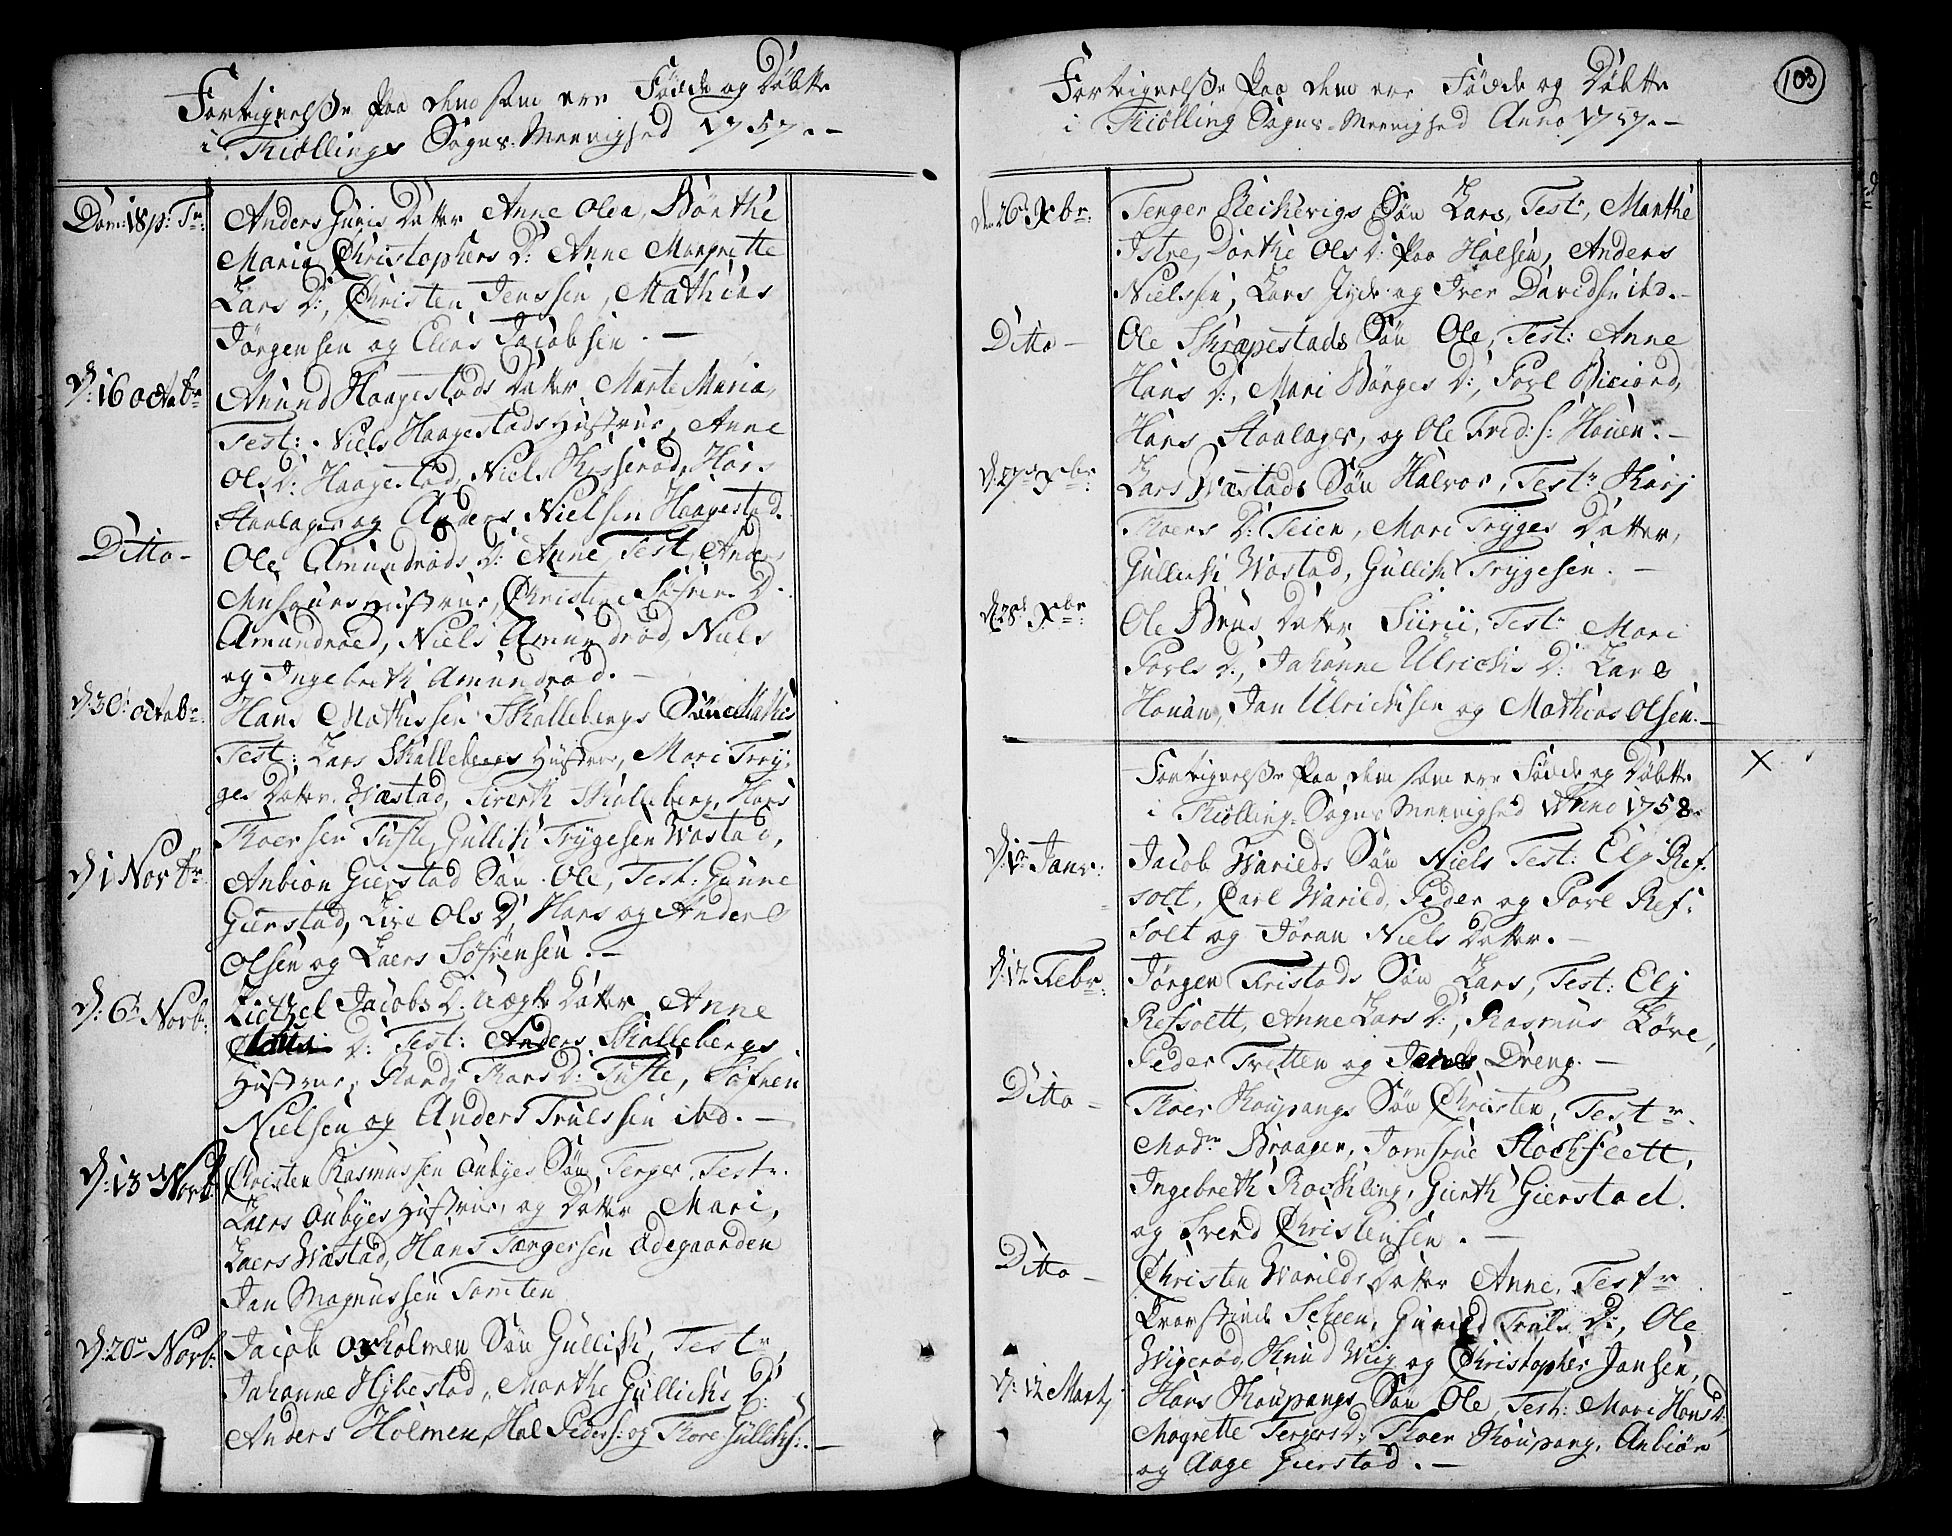 Fortegnelsse Paa dem som ere Fødde og Døbte
i Tiöllings Sogns Meenighed 1757.
Dom: 18 p: Tr: Anders Guris Datter Anne Olea, Børthe
Maria Christophers D: Anne Margrette
Lars D:, Christen Jenssen, Mathias
Jörgensen og Elias Jacobsen.
D: 16 octobr Amund Haagestads Datter Marte Maria,
Test: Niels Haagestads Hustrue, Anne
Ols D: Haagestad, Niels, Hans
Aaalager og Anders Nielsen Haagestad.
Ditto Ole Amundrøds D: Anne Test, Anders
Hustrue, Christine D:
Amundroed, Niels Amundrød, Niels
og Ingebreth Amundrød.
D: 30 octobr: Hans Mathissen Skallebergs Søn Mathis
Test: Lars Skallebergs Hustrue, Mari Tryg-
ges Datter Wastad, Siverth Skalleberg, Hans
Thoersen Tufte, Gullich Trygesen Wastad,
D: 1 Novbr Anbiön Gierstad Søn Ole, Test: Gunne
Gierstad, Live Ols D, Hans og Anders
Olsen og Laers Söfrensen.
D: 6 Novbr: Jacobs D: Datter Anne
D: Test: Anders Skallebergs
Hustrue, Randj D: Tufte, Søfren
Nielsen og Anders Trulssen ibd.
D: 13 Novb: Christen Rasmussen Aubyes Søn Terger, Test:
Laers Aubyes Hustrue, og Datter Mari,
Laers Wastad, Hans Tærgersen Ödegaarden
Jan Magnussen Somten
D: 20 Novb: Jacob Oxholmen Søn Gullich, Test,
Johanne Hybestad, Marthe Gullichs D:
Anders Holmen, Hal Peders: og Thore Gullichs:
103
Fortegnelsse Paa dem ere Fødde og Døbte
i Tiölling Sogns Meenighed Anno 1757.
Den 26 Xbr: Tenger Søn Lars, Test, Marthe
Istre, Dorthe Ols D: Paa Halsen, Anders
Nielsen, Lars Jyde og Iver Davidsen ibd.
Ditto Ole Skræpestads Søn Ole, Test: Anne
Hans D:, Mari Børges D:, Povl Biciord,
Hans Aaalager, og Ole Fred:s: Hauen.
D: 27 Xbr: Lars Wastads Søn Halvor, Test Karj
Thoers D: Teien, Mari Tryges Datter,
Gullich Wastad, Gullich Trygesen.
D: 28 Xbr: Ole Brus Datter Siirii, Test Mari
Povls D:, Johanne Ulrichs D: Lars
Hauan, Jan Ulrichsen og Mathias Olsen.
Fortegnelsse Paa dem som ere Fødde og Døbte
i Tiölling Sogns Meenighed Anno 1758.
X
D: 1 Janv: Jacob Warilds Søn Niels Test: Elj Ref-
solt, Carl Warild, Peder og Povl Ref-
solt og Jöran Niels Datter.
D: 12 Febr: Jörgen Fristads Søn Lars, Test: Elj
Refsoltt, Anne Lars D:, Rasmus Løve,
Peder Tvetten og Jacobs Dreng.
Ditto Thoer Koupangs Søn Christen, Test
Mad Braager, Jomfrue Stochfleett,
Ingebreth Rochling, Gunth Gierstad.
og Svend Christensen.
Ditto Christen Warilds Datter Anne, Test
Scheen, Gunild Truls D:, Ole
Wigerød, Knud Wiig og Christopher Jansen,
D: 12 Martj Hans Koupangs Søn Ole, Test: Mari Hans D:
Magrette Tergers D: Thoer Koupang, Anbiör
og Aage Gierstad.